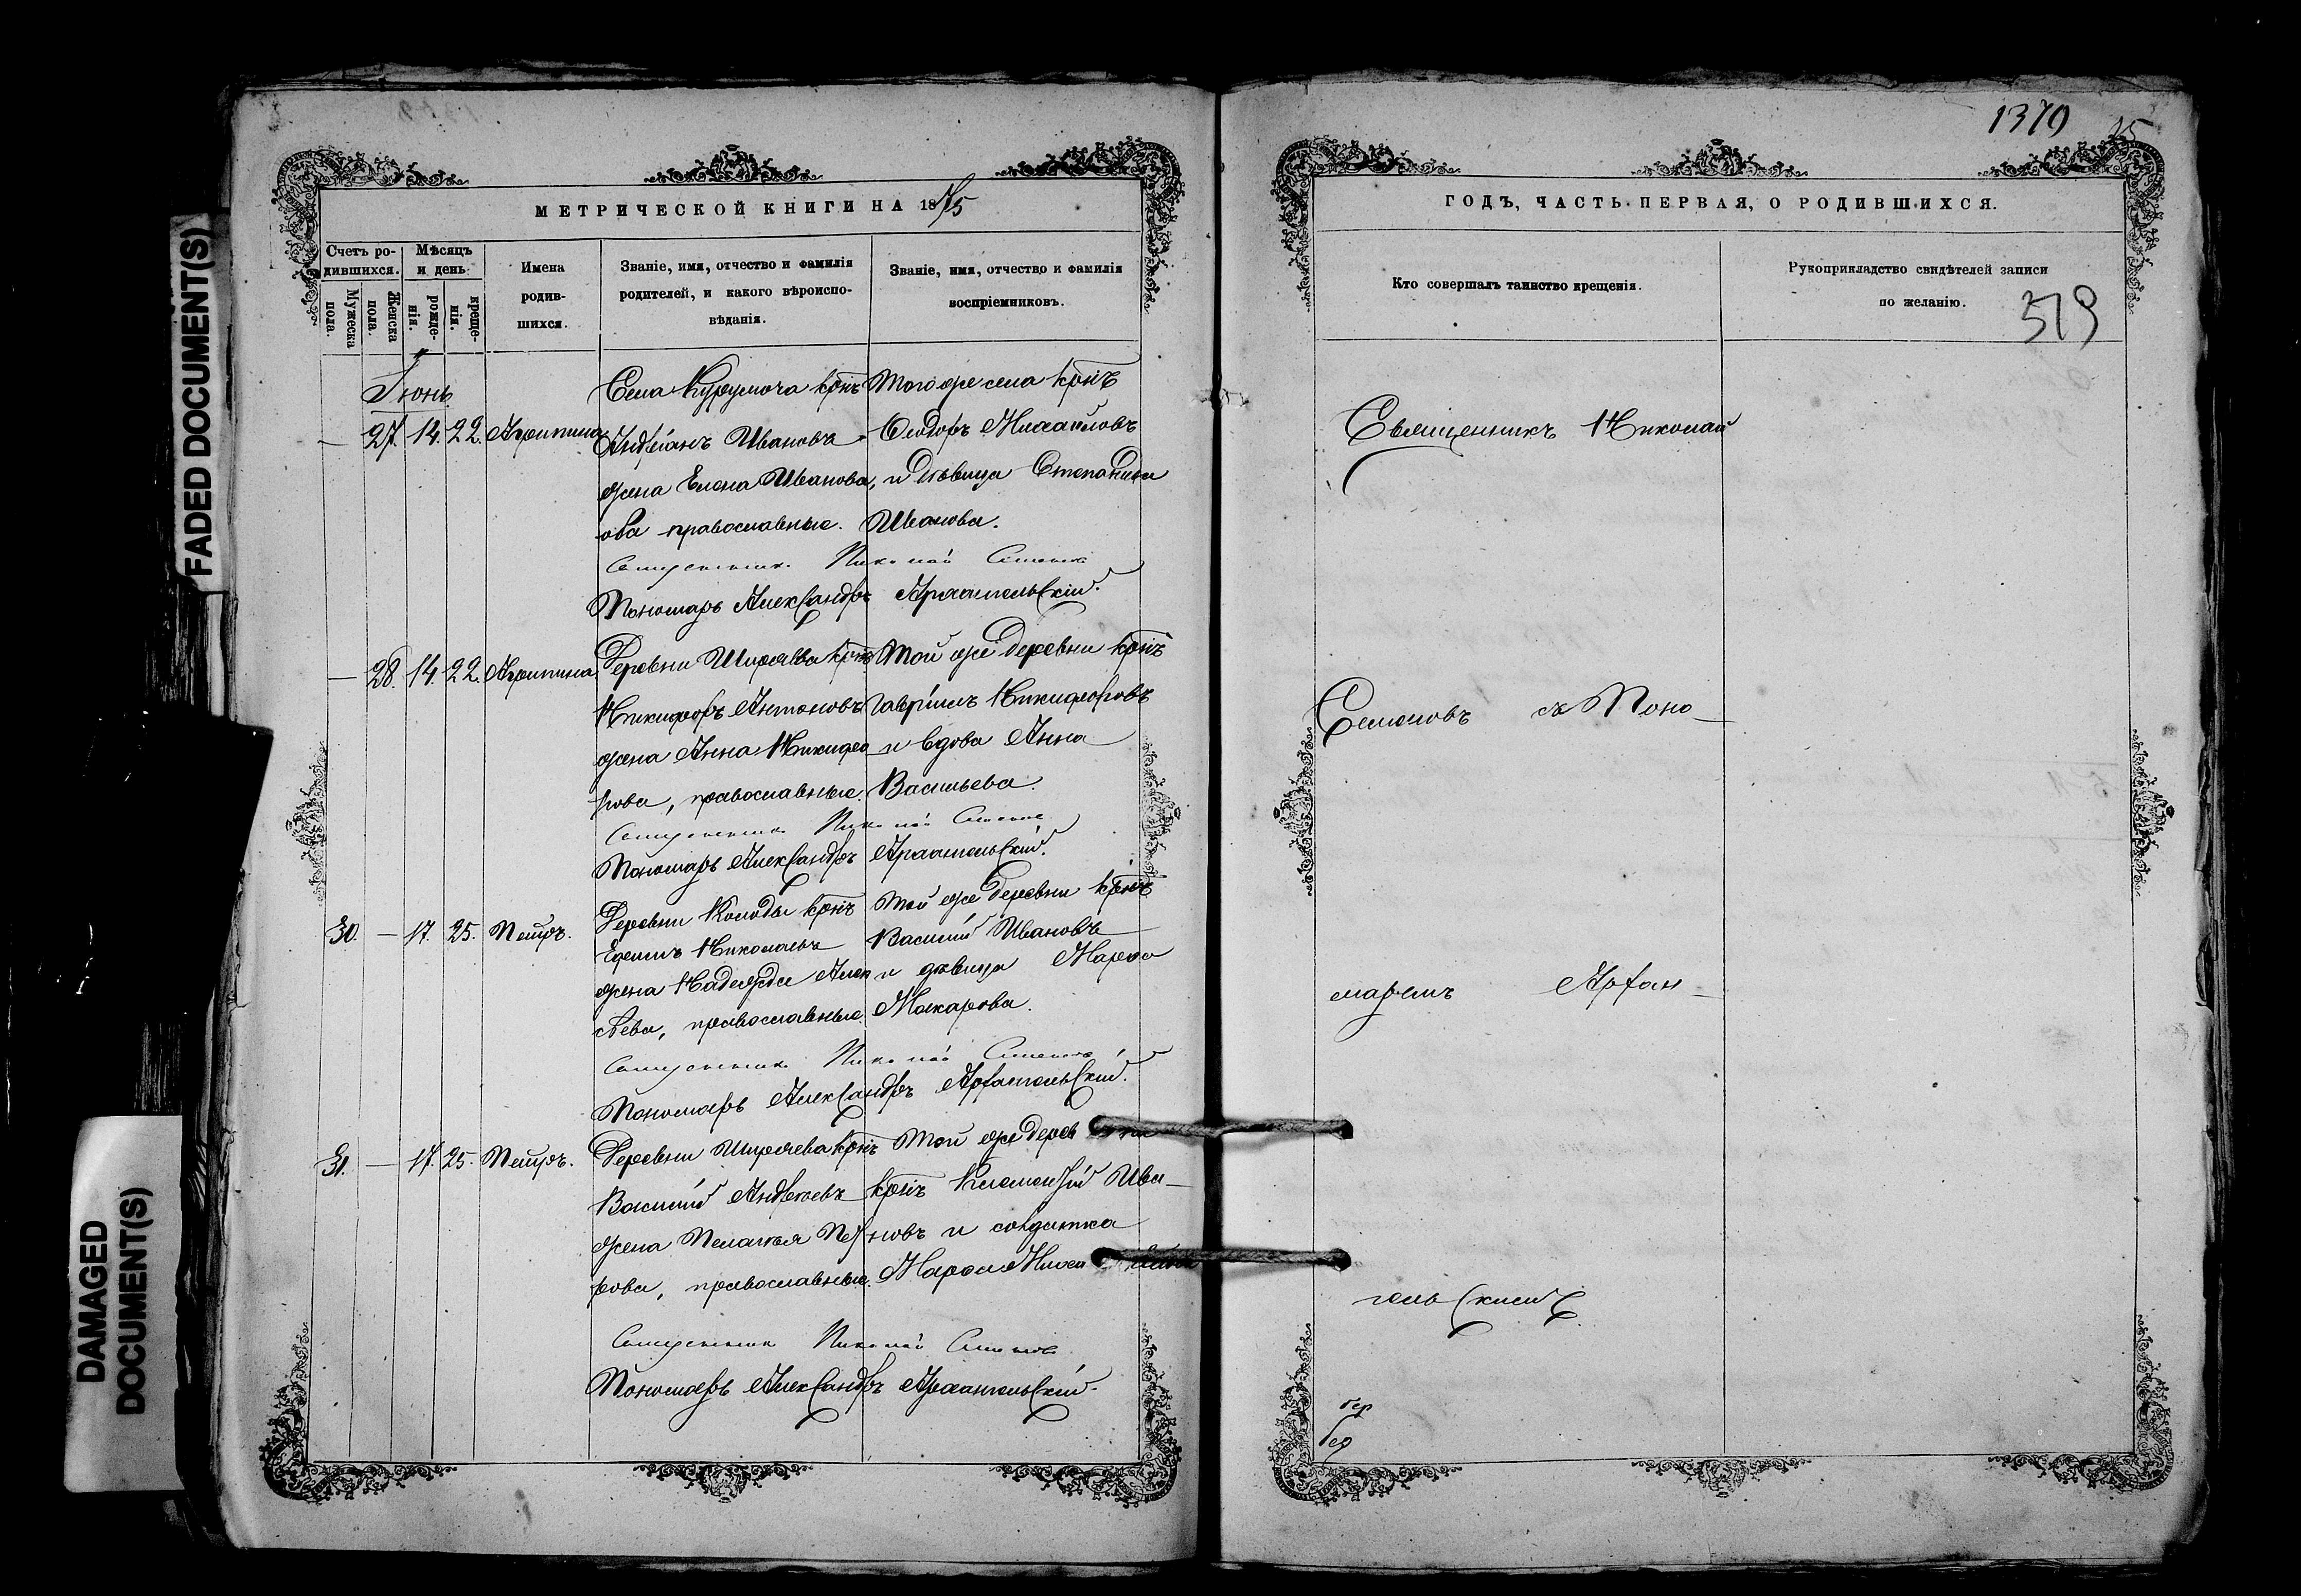 1370
15
МЕТРИЧЕСКОЙ КНИГИ НА 1875
Счетъ ро-
дившихся.
Мужеска пола.
Женска пола.
Мѣсяцъ
и день
рожде-
нія.
креще-
нія.
Имена
родив-
шихся.
Званіе, имя, отчество и фамилія
родителей, и какого вѣроиспо-
вѣданія.
Званіе, имя, отчество и фамилія
воспріемниковъ.
Іюнь
— 27. 14. 22. Агрипина
Села Курумоча крнъ
Андріанъ Ивановъ
жена Елена Иванова,
оба православные.
Того же села крнъ
Ѳеодоръ Михайловъ
и дѣвица Степанида
Иванова.
Священникъ Николай Семеновъ
Пономарь Александръ Архангельскій.
— 28. 14. 22. Агрипина.
Деревни Ширяева крнъ
Никифоръ Антоновъ
жена Анна Никифо
рова, православные.
Той же деревни крнъ
Гавріилъ Никифоровъ
и вдова Анна
Васильева.
Священникъ Николай Семеновъ
Пономарь Александръ Архангельскій.
30. — 17. 25. Петръ.
Деревни Колоды крнъ
Ефимъ Николаевъ
жена Надежда Алек
сѣева, православные.
Той же деревни крнъ
Василій Ивановъ
и дѣвица Марѳа
Макарова.
Священникъ Николай Семеновъ
Пономарь Александръ Архангельскій.
31. — 17. 25. Петръ.
Деревни Ширяева крнъ
Василій Андреевъ
жена Пелагея Пет
рова, православные.
Той же деревни
крнъ Климентій Ива-
новъ и солдатка
Марѳа
Священникъ Николай Семеновъ
Пономарь Александръ Архангельскій.
ГОДЪ, ЧАСТЬ ПЕРВАЯ, О РОДИВШИХСЯ.
Кто совершалъ таинство крещенія.
Рукоприкладство свидѣтелей записи
по желанію.
379
Священникъ Николай
Семеновъ съ Поно-
маремъ Архан-
гельскимъ
FADED DOCUMENT(S)
DAMAGED
DOCUMENT(S)